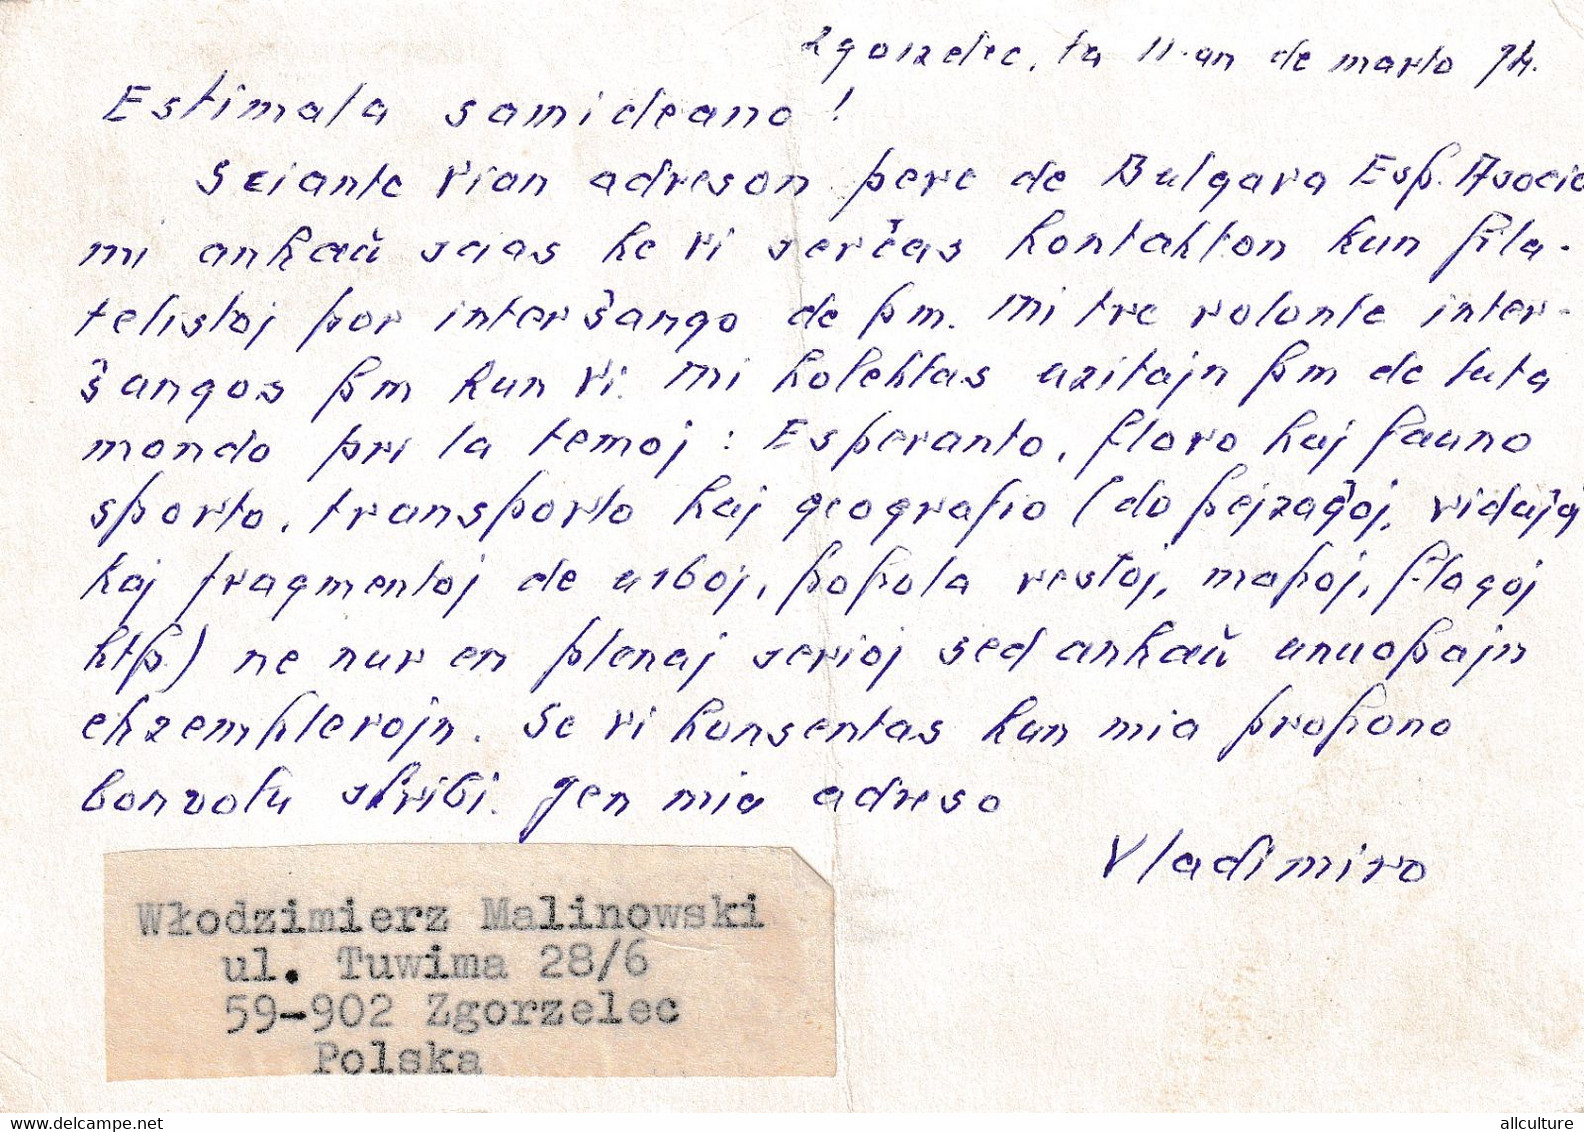 Zgorzelec, la 11-an de marto 74.
Estimata samideano!
Sciante vian adreson pere de Bulgara Esp. Asocio
mi ankaŭ scias ke vi serĉas kontakton kun fila-
telistoj por interŝango de pm. Mi tre volonte inter-
ŝangos pm kun vi. Mi kolektas uzitajn pm de tuta
mondo pri la temoj: Esperanto, floro kaj fauno
sporto, transporto kaj geografio (do pejzaĝoj, vidaĵoj
kaj fragmentoj de urboj, popola vestoj, mapoj, flagoj
ktp) ne nur en plenaj serioj sed ankaŭ unuopajn
ekzemplerojn. Se vi konsentas kun mia propono
bonvolu skribi. Jen mia adreso
Vladimiro
Włodzimierz Malinowski
ul. Tuwima 28/6
59-902 Zgorzelec
Polska
allculture